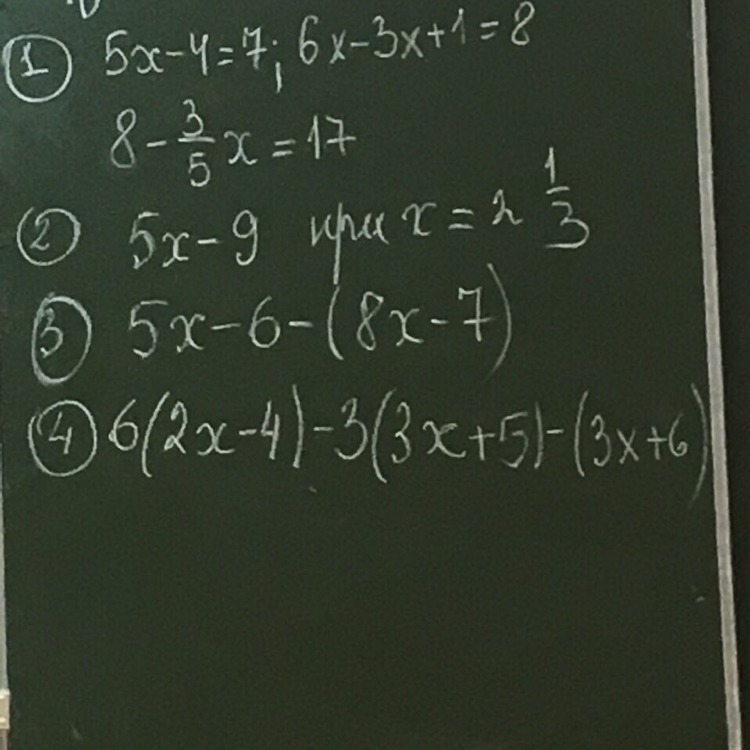 ① 5x-4=7; 6x-3x+1=8
8-\frac{3}{5}x=17
② 5x-9 при x=2\frac{1}{3}
③ 5x-6-(8x-7)
④ 6(2x-4)-3(3x+5)-(3x+6)